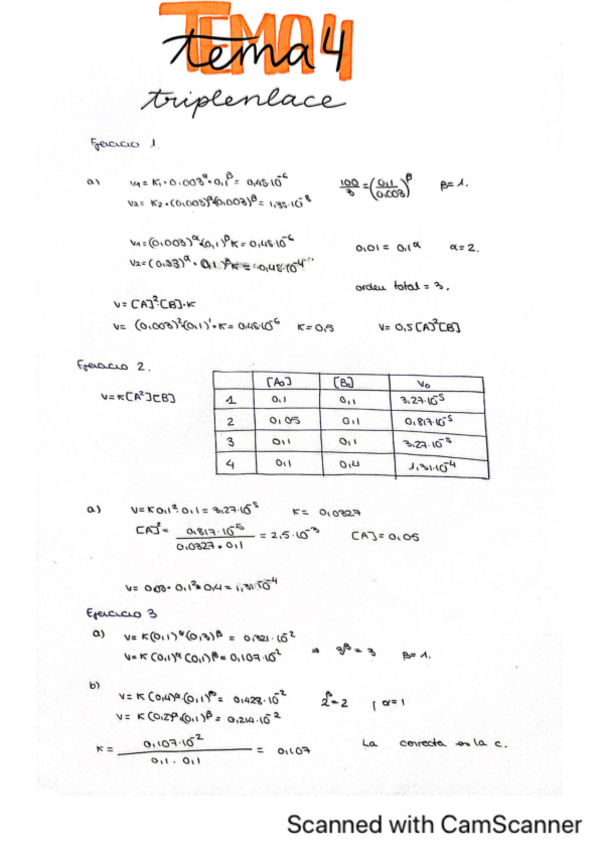 TEMA 4
tema 4
triplenlace
Ejercicio 1.
a) v1 = K1·0.003^α·0,1^β = 0,45·10^-6    100/3 = (0,1/0.003)^β    β=1.
v2 = K2·(0,003)^α(0,003)^β = 1,35·10^-8
v1=(0.003)^α(0,1)^β K=0,45·10^-6    0,01 = 0,1^α    α=2.
v2=(0,33)^α·(0,1)^β K = 0,45·10^-4
orden total = 3.
v= [A]²[B]·K
v= (0,003)²(0,1)¹·K= 0,45·10^-6    K=0,5    v= 0,5[A]²[B]
Ejercicio 2.
v=K[A²][B]
[A₀] [B₀] v₀
1 0,1 0,1 3,27·10^-5
2 0,05 0,1 0,817·10^-5
3 0,1 0,1 3,27·10^-5
4 0,1 0,4 1,31·10^-4
a) v=K0,1²·0,1=3,27·10^-5    K= 0,0327
[A]²= 0,817·10^-5 / 0,0327·0,1 = 2,5·10^-3    [A]=0,05
v= 0,03·0,1²·0,4=1,31·10^-4
Ejercicio 3
a) v= K(0,1)^α(0,3)^β = 0,321·10^-2
v= K(0,1)^α(0,1)^β=0,107·10^-2    → 3^β=3    β=1.
b)
v= K(0,4)^α(0,1)^β= 0,428·10^-2    2^β=2 , α=1
v= K(0,2)^α(0,1)^β = 0,214·10^-2
K= 0,107·10^-2 / 0,1·0,1 = 0,107    La correcta es la c.
Scanned with CamScanner